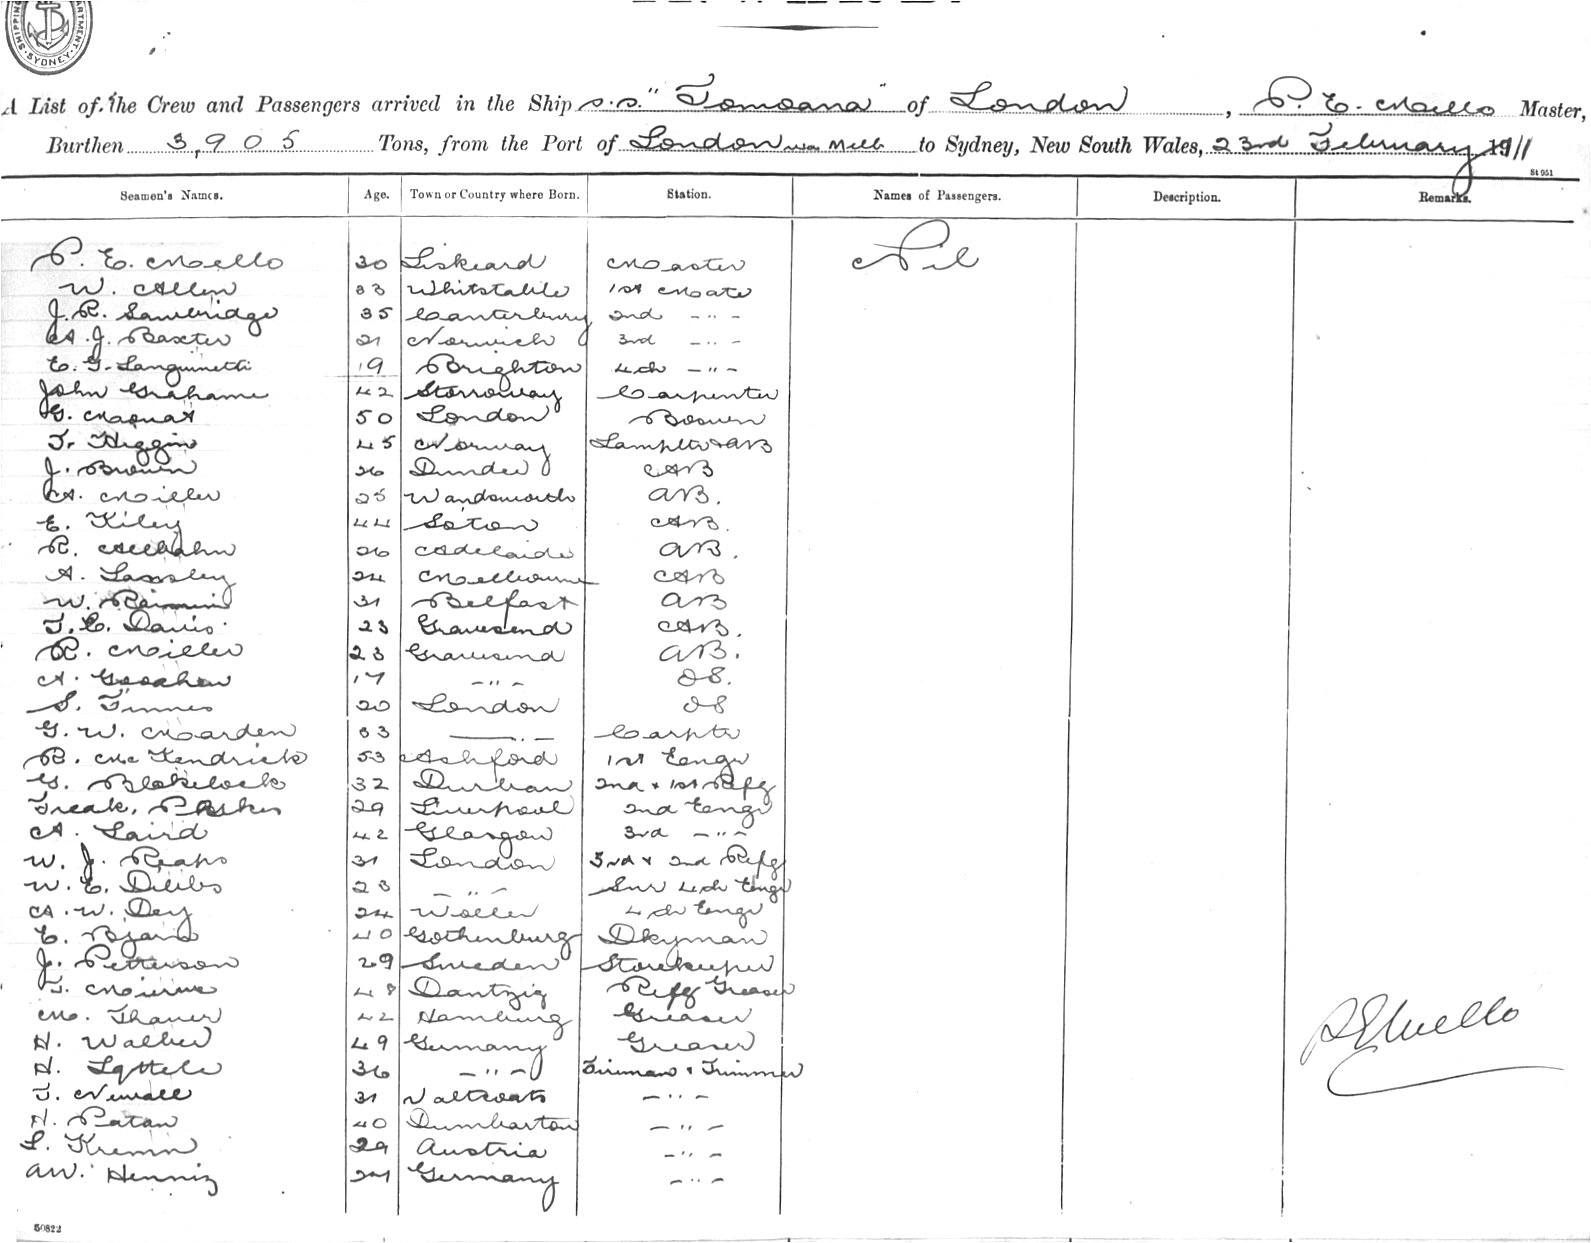 SHIPPING DEPARTMENT. SYDNEY.
A List of the Crew and Passengers arrived in the Ship s.s. "Tomoana" of London, P. E. Mello Master,
Burthen 3,905 Tons, from the Port of London via Melb to Sydney, New South Wales, 23rd February 1911
St 951
Seamen's Names. Age. Town or Country where Born. Station. Names of Passengers. Description. Remarks.
P. E. Mello 30 Liskeard Master Nil
W. Allen 33 Whitstable 1st Mate
J. R. Sambridge 35 Canterbury 2nd -"-
A. J. Baxter 21 Norwich 3rd -"-
E. G. Sanguinetti 19 Brighton 4th -"-
John Grahame 42 Stornoway Carpenter
G. 50 London Bosun
T. Higgin 45 Norway Lamps + AB
J. Brown 26 Dundee AB
A. Miller 25 Wandsworth AB.
E. Kiley 44 Soton AB.
R. 26 Adelaide AB.
A. 24 Melbourne AB
W. 31 Belfast AB
T. C. Davis 23 Gravesend AB.
R. Miller 23 Gravesend AB.
A. 17 -"- OS.
S. 20 London OS
G. W. Marden 33 -"- Carptr
R. Mc Kendrick 53 Ashford 1st Engr
G. Blakelock 32 Durban 2nd + 1st Refg
29 Liverpool 2nd Engr
A. Laird 42 Glasgow 3rd -"-
W. J. 31 London 3rd + 2nd Refg
W. E. 23 -"- Snr 4th Engr
A. W. Dey 24 4th Engr
E. 40 Gothenburg Dkyman
J. Petterson 29 Sweden Storekeeper
T. 48 Dantzig Refg Greaser
M. Thauer 42 Hamburg Greaser
H. Walber 49 Germany Greaser
H. 36 -"- Fireman + Trimmer
T. Newall 31 -"-
H. Paton 40 Dumbarton -"-
L. 29 Austria -"-
AW. Hennig 24 Germany -"-
P E Mello
50822